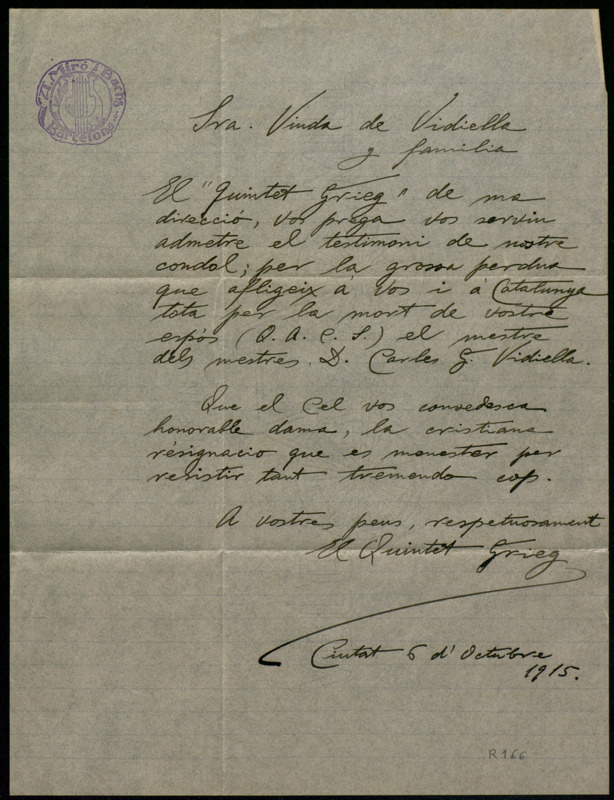 A. Miró Bachs
Barcelona
Sra. Viuda de Vidiella
y familia
El "Quintet Grieg" de ma
direcció, vos prega vos serviu
admetre el testimoni de nostre
condol; per la grossa perdua
que afligeix á vos i á Catalunya
tota per la mort de vostre
espós (Q. A. C. S.) el mestre
dels mestres, D. Carles G. Vidiella.
Que el Cel vos consedesca
honorable dama, la cristiana
résignacio que es menester per
resistir tant tremendo cop.
A vostres peus, respetuosament
El Quintet Grieg
Ciutat 6 d'Octubre
1915.
R 166